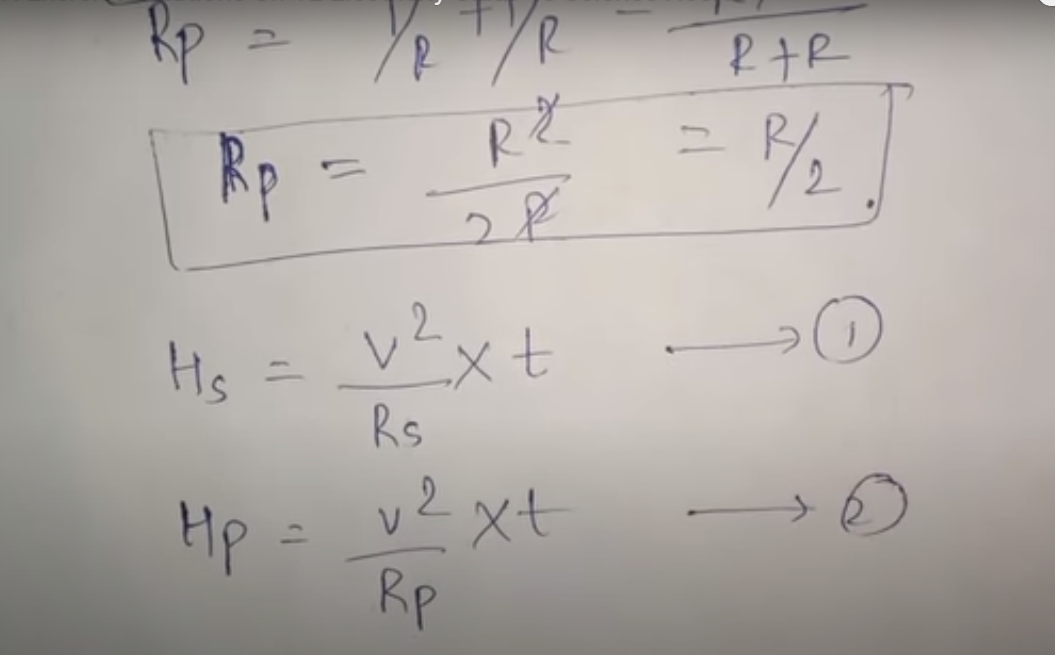 Rp = 1/R + 1/R = R+R
Rp = R2 / 2R = R/2.
Hs = V2 / Rs x t → 1
Hp = V2 / Rp x t → 2